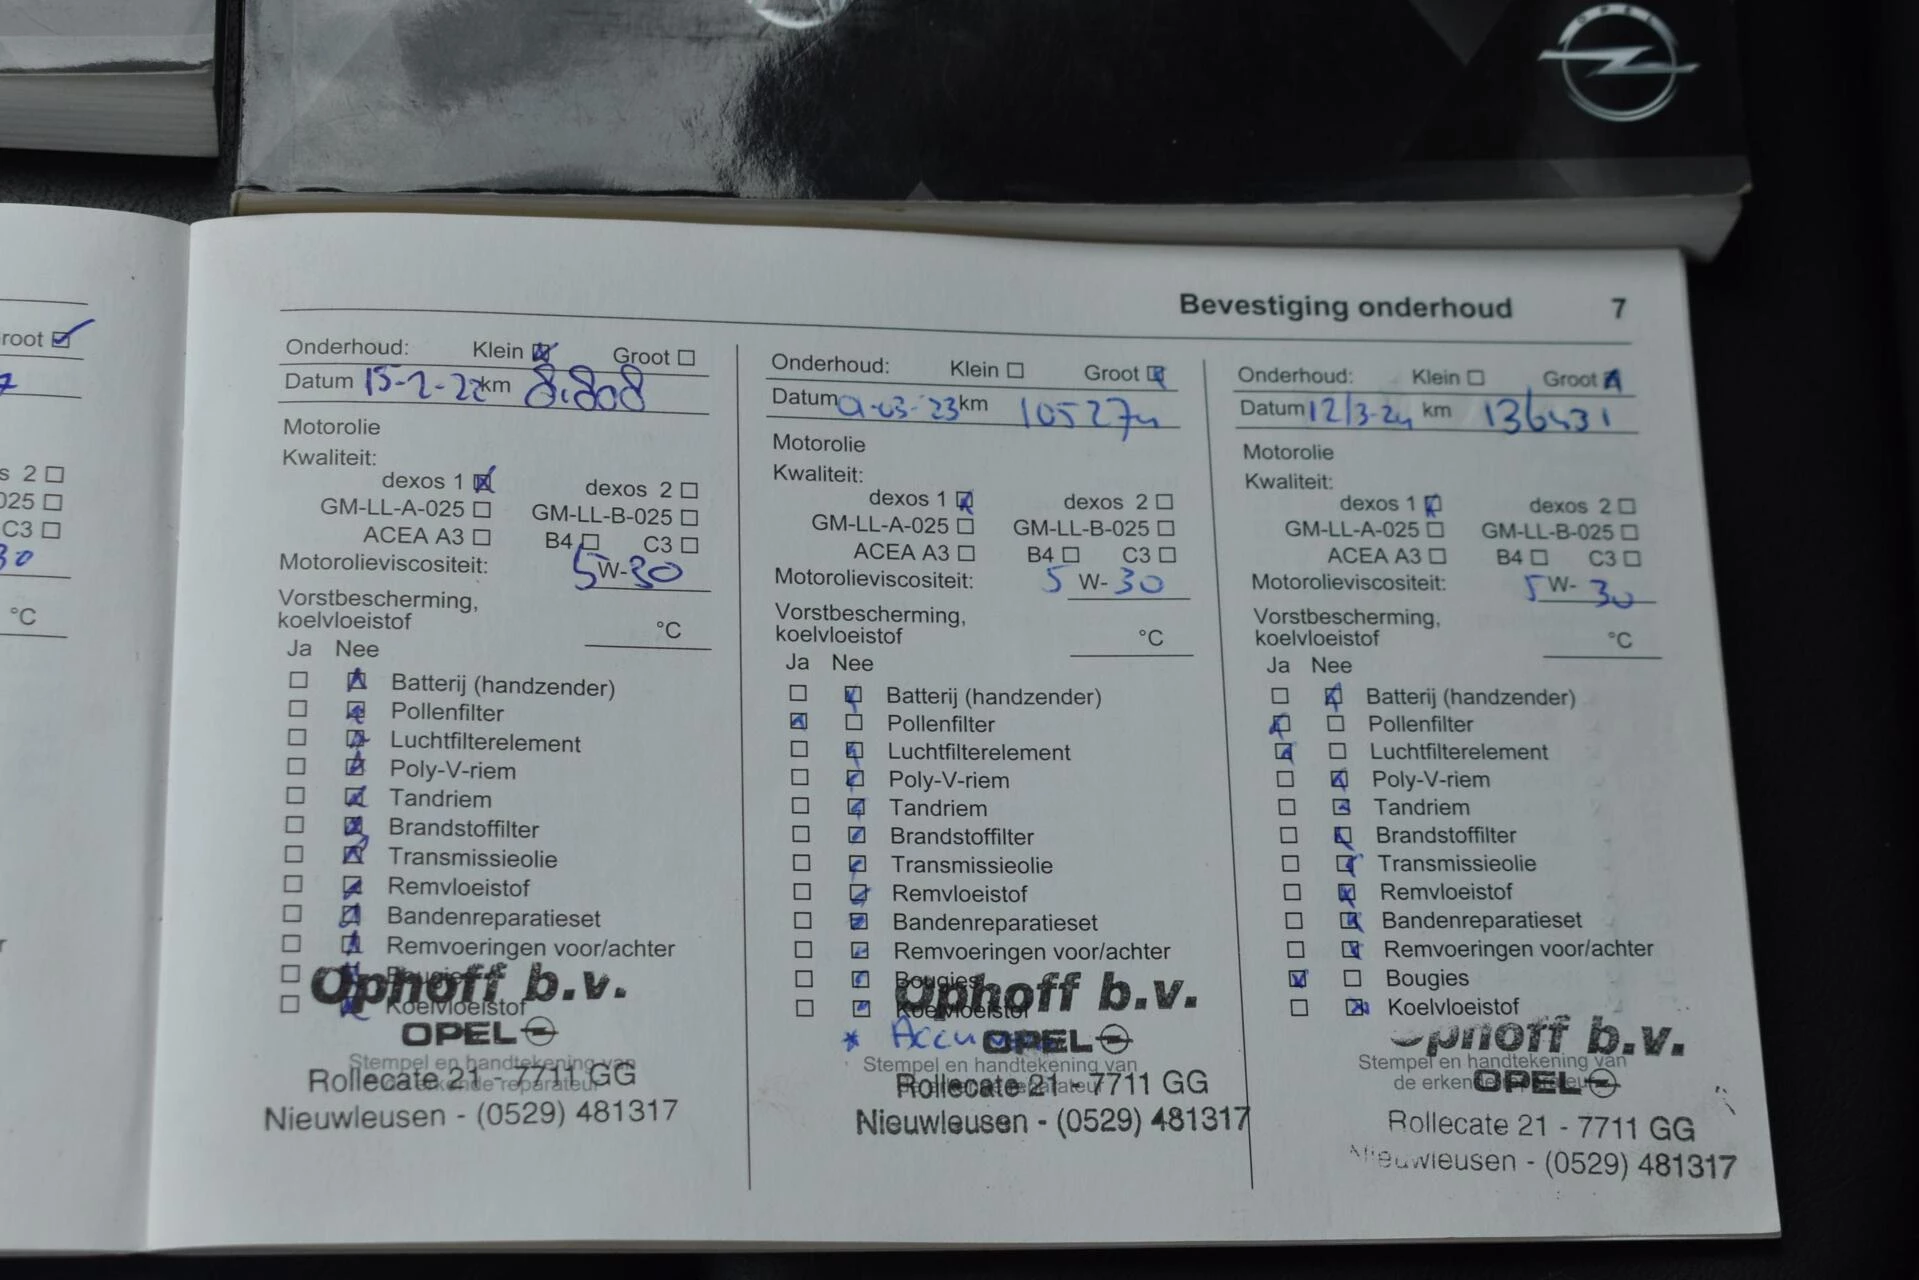 OPEL
Bevestiging onderhoud 7
root
s 2
025
C3
30
°C
Onderhoud: Klein Groot
Datum 15-2-22 km 8.808
Motorolie
Kwaliteit:
dexos 1 dexos 2
GM-LL-A-025 GM-LL-B-025
ACEA A3 B4 C3
Motorolieviscositeit: 5 W-30
Vorstbescherming,
koelvloeistof °C
Ja Nee
Batterij (handzender)
Pollenfilter
Luchtfilterelement
Poly-V-riem
Tandriem
Brandstoffilter
Transmissieolie
Remvloeistof
Bandenreparatieset
Remvoeringen voor/achter
Bougies
Koelvloeistof
Ophoff b.v.
OPEL
Stempel en handtekening van
Rollecate 21 - 7711 GG
Nieuwleusen - (0529) 481317
Onderhoud: Klein Groot
Datum 01-03-'23 km 105274
Motorolie
Kwaliteit:
dexos 1 dexos 2
GM-LL-A-025 GM-LL-B-025
ACEA A3 B4 C3
Motorolieviscositeit: 5 W-30
Vorstbescherming,
koelvloeistof °C
Ja Nee
Batterij (handzender)
Pollenfilter
Luchtfilterelement
Poly-V-riem
Tandriem
Brandstoffilter
Transmissieolie
Remvloeistof
Bandenreparatieset
Remvoeringen voor/achter
Bougies
Koelvloeistof
Ophoff b.v.
* Accu
OPEL
Stempel en handtekening van
Rollecate 21 - 7711 GG
Nieuwleusen - (0529) 481317
Onderhoud: Klein Groot
Datum 12/3-24 km 136431
Motorolie
Kwaliteit:
dexos 1 dexos 2
GM-LL-A-025 GM-LL-B-025
ACEA A3 B4 C3
Motorolieviscositeit: 5 W-30
Vorstbescherming,
koelvloeistof °C
Ja Nee
Batterij (handzender)
Pollenfilter
Luchtfilterelement
Poly-V-riem
Tandriem
Brandstoffilter
Transmissieolie
Remvloeistof
Bandenreparatieset
Remvoeringen voor/achter
Bougies
Koelvloeistof
Ophoff b.v.
Stempel en handtekening van
de erkende
OPEL
Rollecate 21 - 7711 GG
Nieuwleusen - (0529) 481317